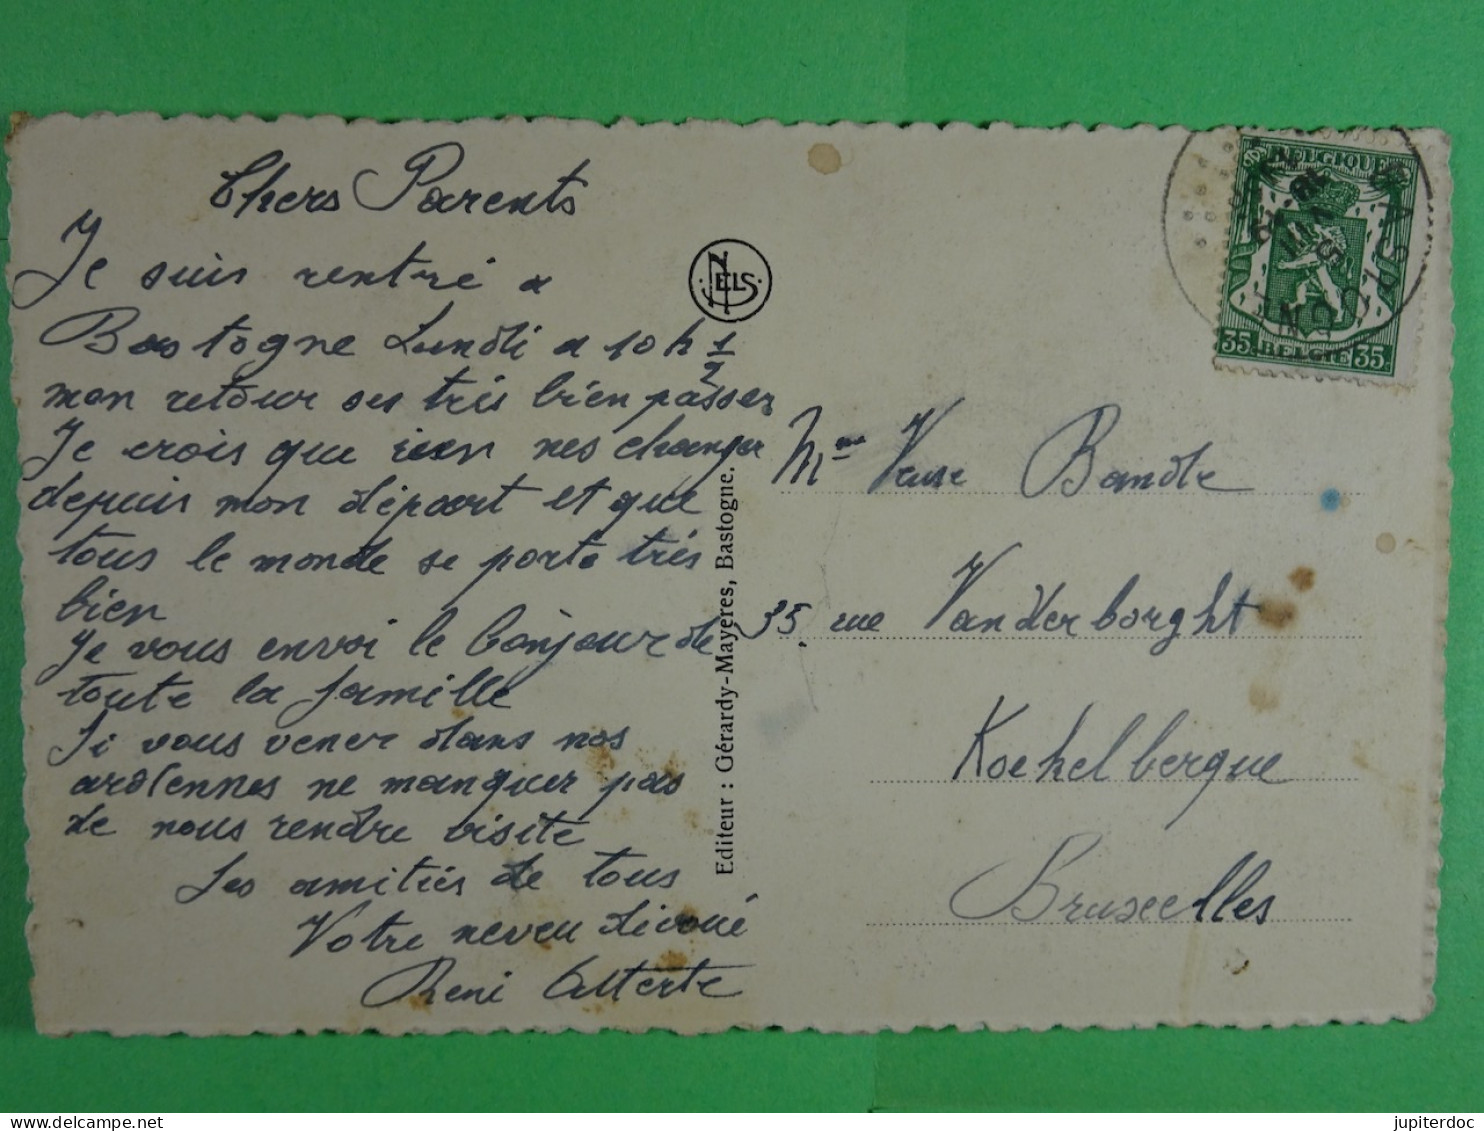 Chers Parents
Je suis rentré a
Bastogne Lundi a 10 h 1/2
mon retour ses très bien passer
Je crois que rien nes changer
depuis mon départ et que
tous le monde se porte très
bien
Je vous envoi le bonjour de
toute la famille
Si vous vener dans nos
ardennes ne manquer pas
de nous rendre visite
Les amitiés de tous
Votre neveu dévoué
René Atterte
NELS
Editeur : Gérardy-Mayeres, Bastogne.
BELGIQUE
35 BELGIE 35
BASTOGNE
Mme Veuve Bandle
35. rue Vanderborght
Koekelbergue
Bruxelles
jupiterdoc